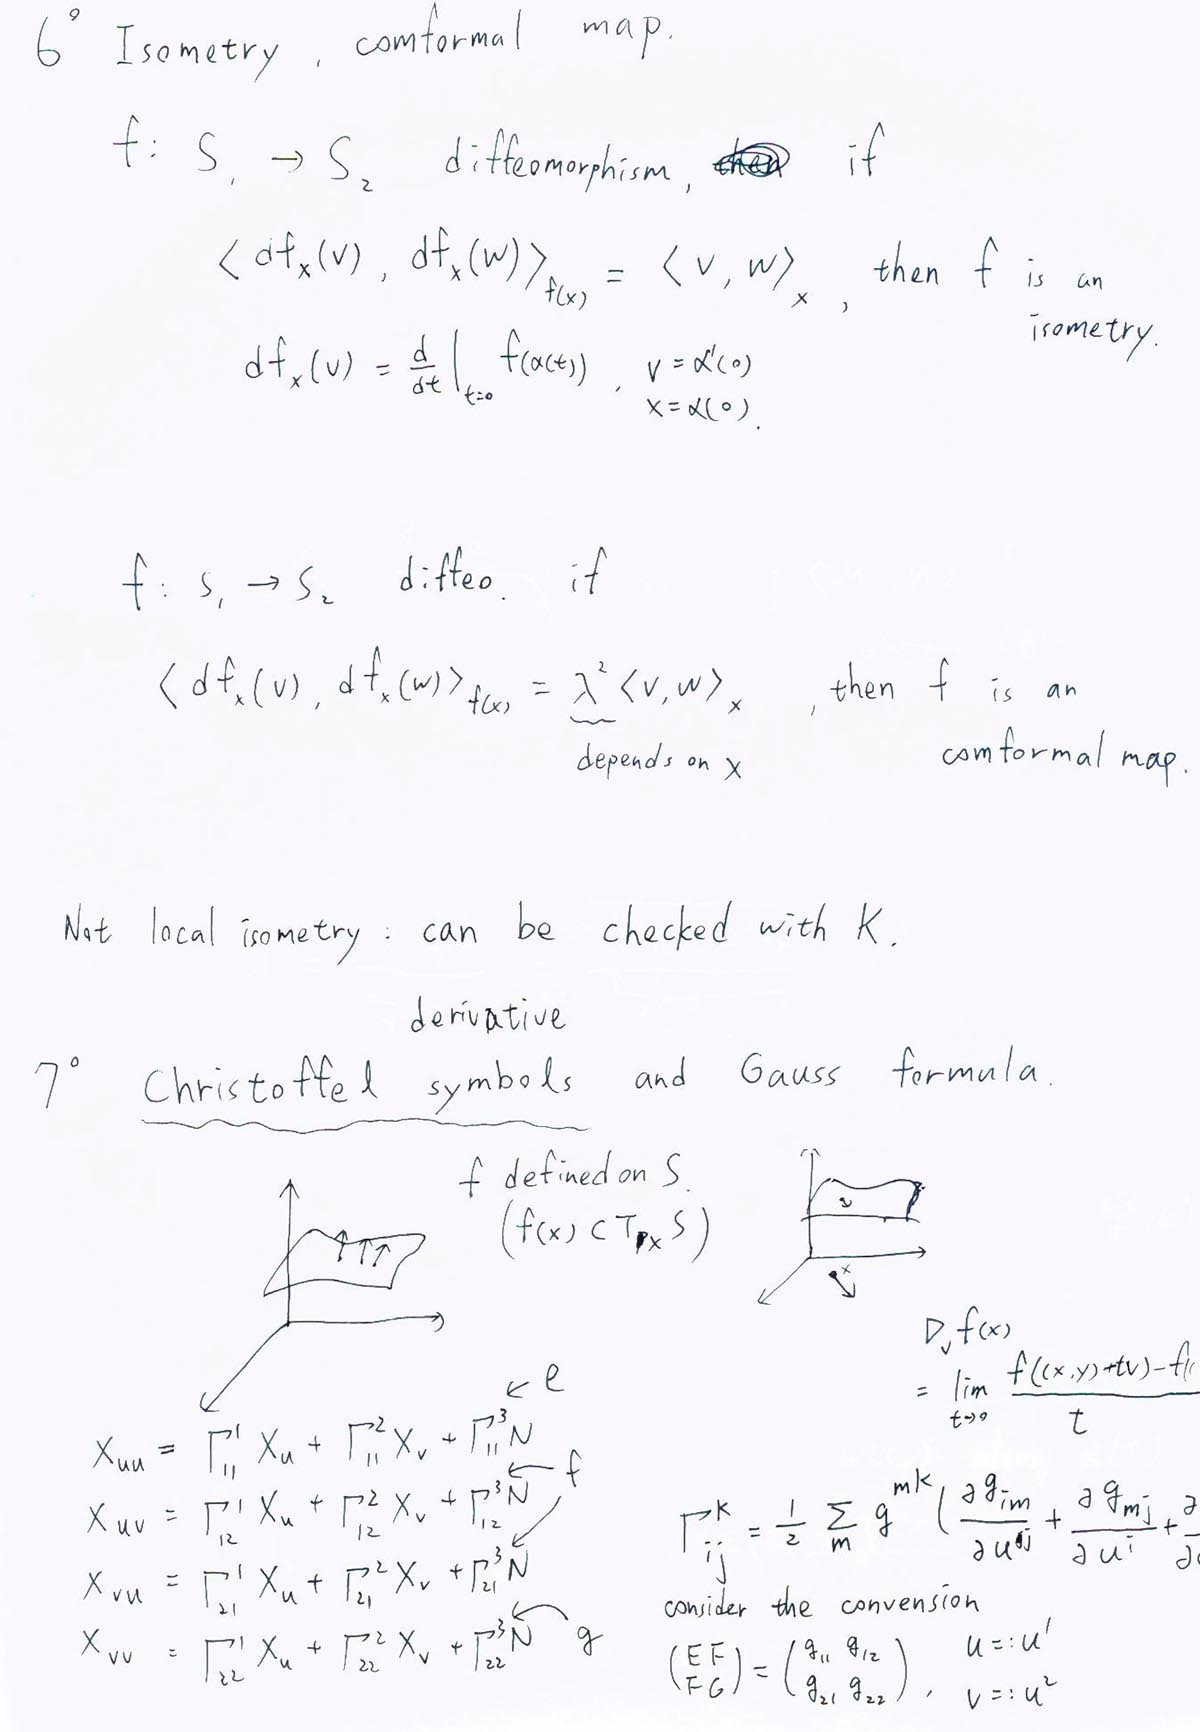 6° Isometry, comformal map.
f: S₁ → S₂ diffeomorphism, if
⟨dfₓ(v), dfₓ(w)⟩_f(x) = ⟨v, w⟩ₓ, then f is an
isometry.
dfₓ(v) = d/dt |_t=0 f(α(t)), v = α'(0)
x = α(0).
f: S₁ → S₂ diffeo. if
⟨dfₓ(v), dfₓ(w)⟩_f(x) = λ² ⟨v, w⟩ₓ, then f is an
depends on x
comformal map.
Not local isometry: can be checked with K.
derivative
7° Christoffel symbols and Gauss formula.
f defined on S.
(f(x) ⊂ T_px S)
x
D_v f(x)
= lim_t→0 f((x,y)+tv) - f( / t
← e
X_uu = Γ₁₁¹ X_u + Γ₁₁² X_v + Γ₁₁³ N
← f
X_uv = Γ₁₂¹ X_u + Γ₁₂² X_v + Γ₁₂³ N
X_vu = Γ₂₁¹ X_u + Γ₂₁² X_v + Γ₂₁³ N
X_vv = Γ₂₂¹ X_u + Γ₂₂² X_v + Γ₂₂³ N
← g
Γ_ij^k = 1/2 Σ_m g^mk (∂g_im/∂u^j + ∂g_mj/∂u^i + ∂
consider the convension
(E F
F G) = (g₁₁ g₁₂
g₂₁ g₂₂), u =: u¹
v =: u²